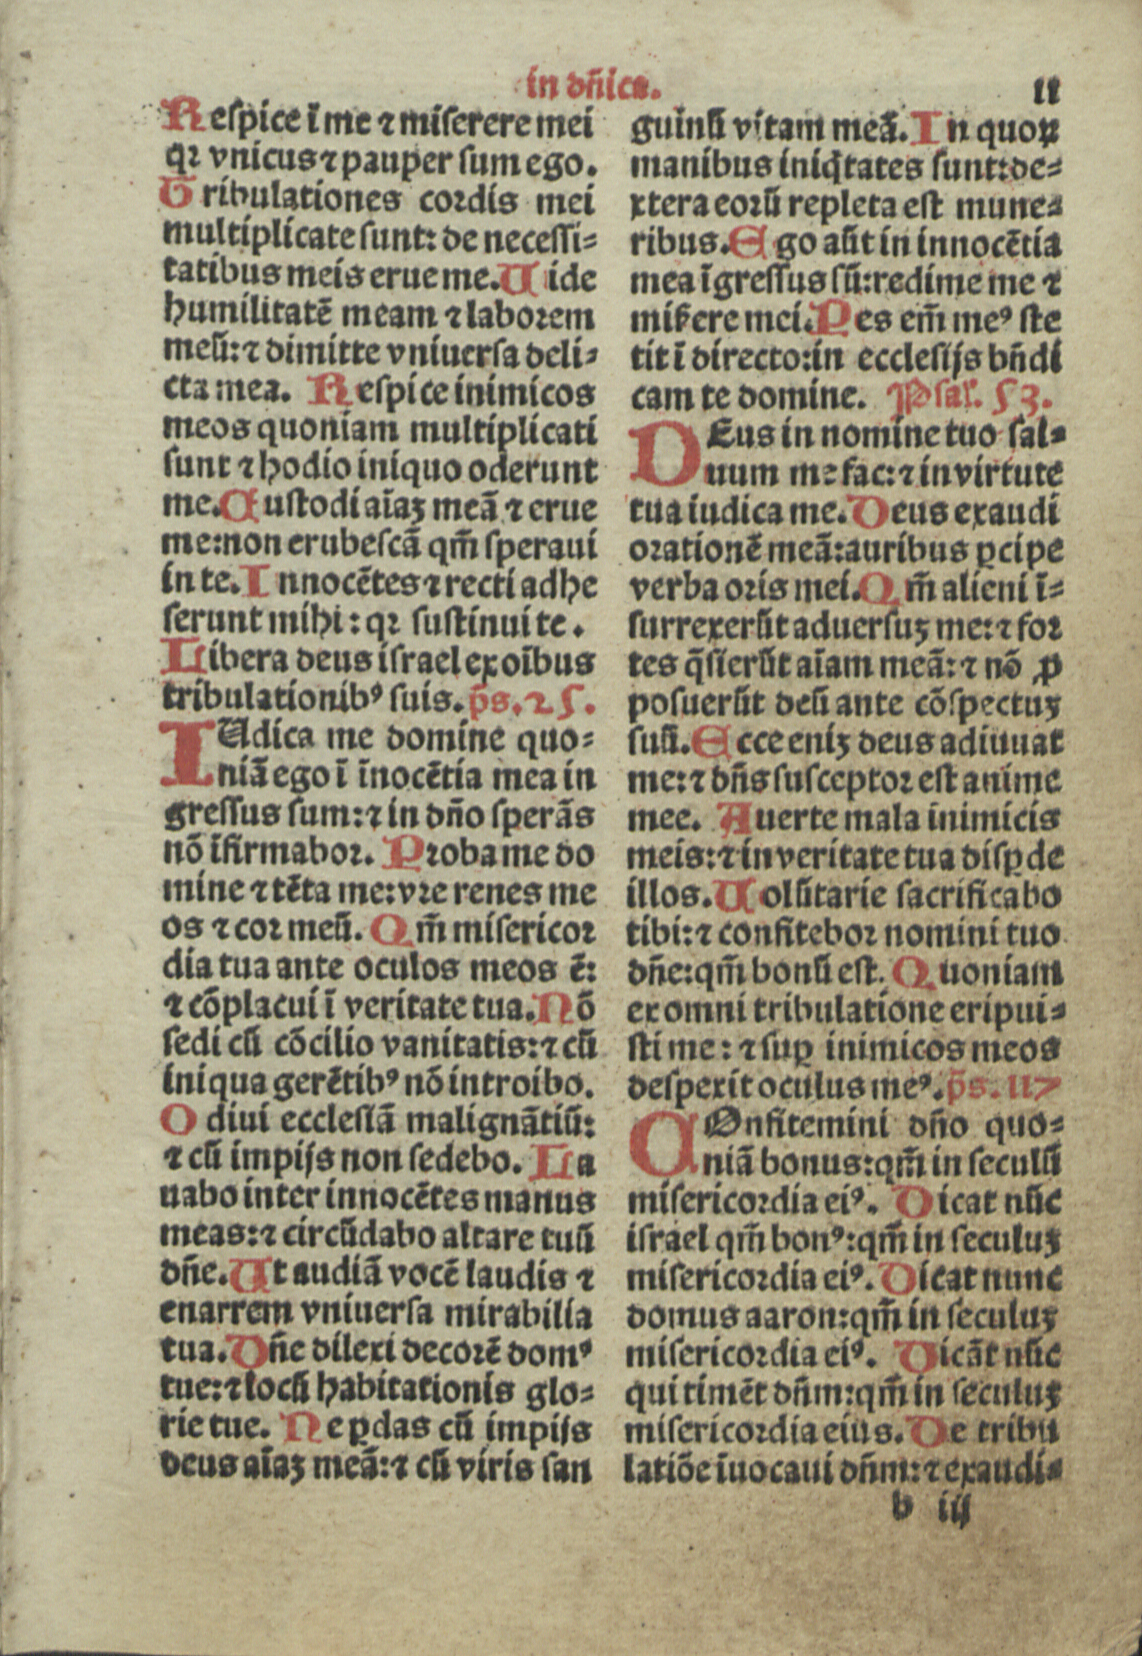 in dn̄ica.
11
Respice ī me ⁊ miserere mei
qꝛ vnicus ⁊ pauper sum ego.
Tribulationes cordis mei
multiplicate sunt: de necessi-
tatibus meis erue me. Uide
humilitatē meam ⁊ laborem
meū: ⁊ dimitte vniuersa deli-
cta mea. Respice inimicos
meos quoniam multiplicati
sunt ⁊ hodio iniquo oderunt
me. Custodi aīaꝫ meā ⁊ erue
me: non erubescā qm̄ speraui
in te. Innocētes ⁊ recti adhe
serunt mihi: qꝛ sustinui te.
Libera deus israel ex oībus
tribulationibꝰ suis. p̄s. 25.
IUdica me domine quo-
niā ego ī īnocētia mea in
gressus sum: ⁊ in dn̄o sperās
nō īfirmabor. Proba me do
mine ⁊ tēta me: vre renes me
os ⁊ cor meū. Qm̄ misericor
dia tua ante oculos meos ē:
⁊ cōplacui ī veritate tua. Nō
sedi cū cōcilio vanitatis: ⁊ cū
iniqua gerētibꝰ nō introibo.
Odiui ecclesiā malignātiū:
⁊ cū impijs non sedebo. La
uabo inter innocētes manus
meas: ⁊ circūdabo altare tuū
dn̄e. Ut audiā vocē laudis ⁊
enarrem vniuersa mirabilia
tua. Dn̄e dilexi decorē domꝰ
tue: ⁊ locū habitationis glo-
rie tue. Ne ꝑdas cū impijs
deus aīaꝫ meā: ⁊ cū viris san
guinū vitam meā. In quoꝝ
manibus iniq̄tates sunt: de-
xtera eorū repleta est mune-
ribus. Ego aūt in innocētia
mea īgressus sū: redime me ⁊
miẜere mei. Pes em̄ meꝰ ste
tit ī directo: in ecclesijs bn̄di
cam te domine. Psaꝉ. 53.
DEus in nomine tuo sal-
uum me fac: ⁊ in virtute
tua iudica me. Deus exaudi
orationē meā: auribus ꝑcipe
verba oris mei. Qm̄ alieni ī-
surrexerūt aduersuꝫ me: ⁊ for
tes q̄sierūt aīam meā: ⁊ nō ꝓ
posuerūt deū ante cōspectuꝫ
suū. Ecce eniꝫ deus adiuuat
me: ⁊ dn̄s susceptor est anime
mee. Auerte mala inimicis
meis: ⁊ in veritate tua disꝑde
illos. Uolūtarie sacrificabo
tibi: ⁊ confitebor nomini tuo
dn̄e: qm̄ bonū est. Quoniam
ex omni tribulatione eripui-
sti me: ⁊ suꝑ inimicos meos
despexit oculus meꝰ. p̄s. 117
COnfitemini dn̄o quo-
niā bonus: qm̄ in seculū
misericordia eiꝰ. Dicat nūc
israel qm̄ bonꝰ: qm̄ in seculuꝫ
misericordia eiꝰ. Dicat nunc
domus aaron: qm̄ in seculuꝫ
misericordia eiꝰ. Dicāt nūc
qui timēt dn̄m: qm̄ in seculuꝫ
misericordia eius. De tribu
latiōe īuocaui dn̄m: ⁊ exaudi-
b iij